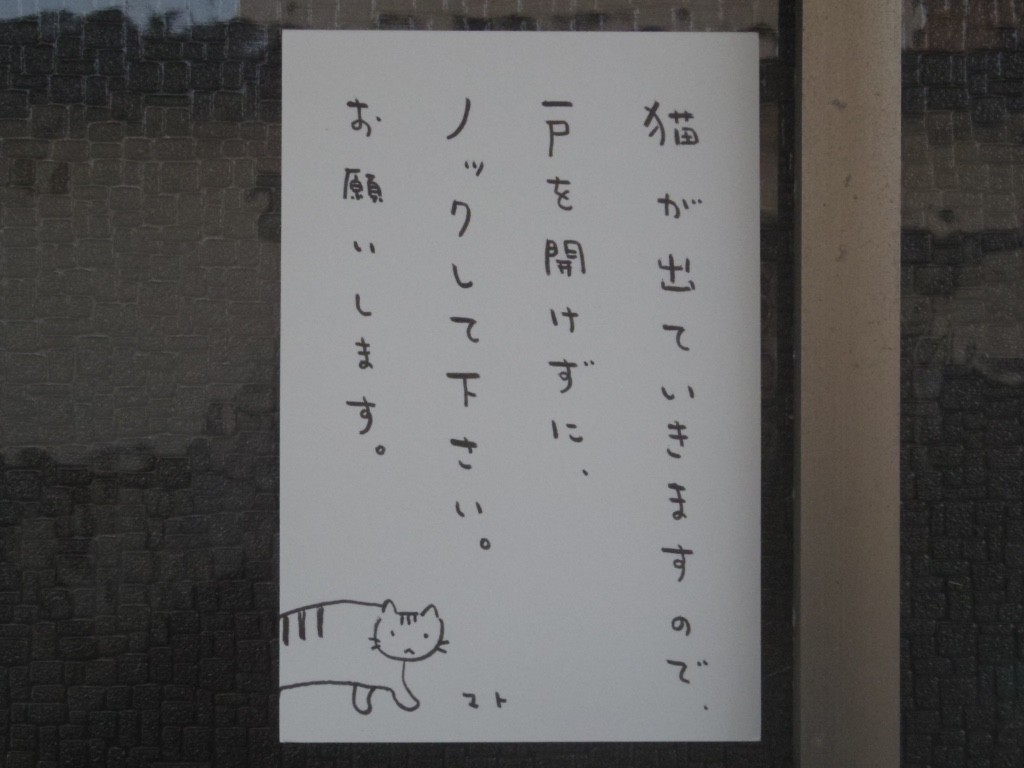 猫が出ていきますので、
戸を開けずに、
ノックして下さい。
お願いします。
マト